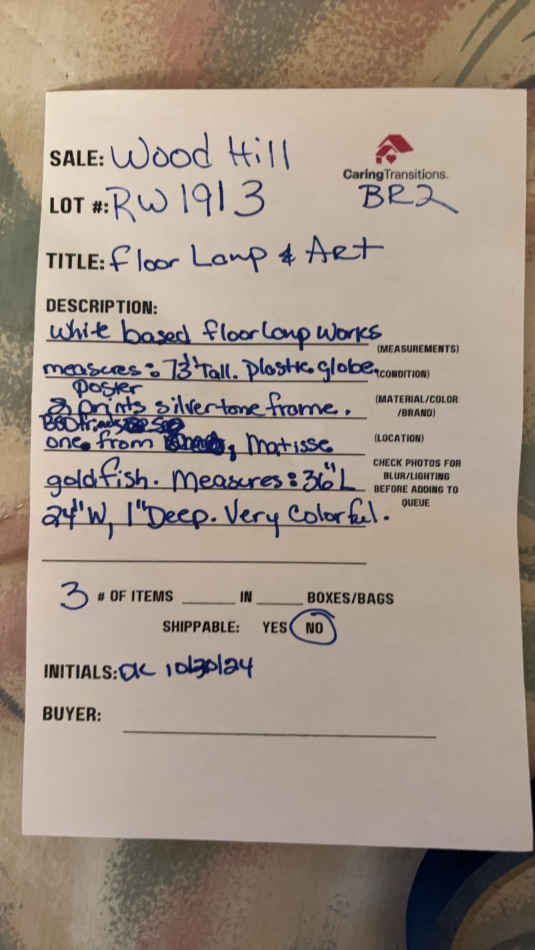 SALE: Wood Hill
CaringTransitions.
LOT #: RW1913
BR2
TITLE: floor Lamp & Art
DESCRIPTION:
White based floor Lamp Works
(MEASUREMENTS)
measures: 73" Tall. plastic globe.
(CONDITION)
poster
2 prints silvertone frame.
(MATERIAL/COLOR
/BRAND)
one from , Matisse
(LOCATION)
goldfish. Measures: 36" L
24" W, 1" Deep. Very Colorful.
CHECK PHOTOS FOR
BLUR/LIGHTING
BEFORE ADDING TO
QUEUE
3 # OF ITEMS ____ IN ____ BOXES/BAGS
SHIPPABLE: YES NO
INITIALS: DK 10/30/24
BUYER: